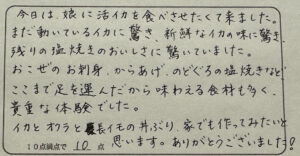 今日は、娘に活イカを食べさせたくて来ました。
まだ動いているイカに驚き、新鮮なイカの味に驚き、
残りの塩焼きのおいしさに驚いていました。
おこぜのお刺身、からあげ、のどぐろの塩焼きなど、
ここまで足を運んだから味わえる食材も多く、
貴重な体験でした。
イカとオクラと長イモの丼ぶり、家でも作ってみたいと
思います。ありがとうございました!
10点満点で 10 点